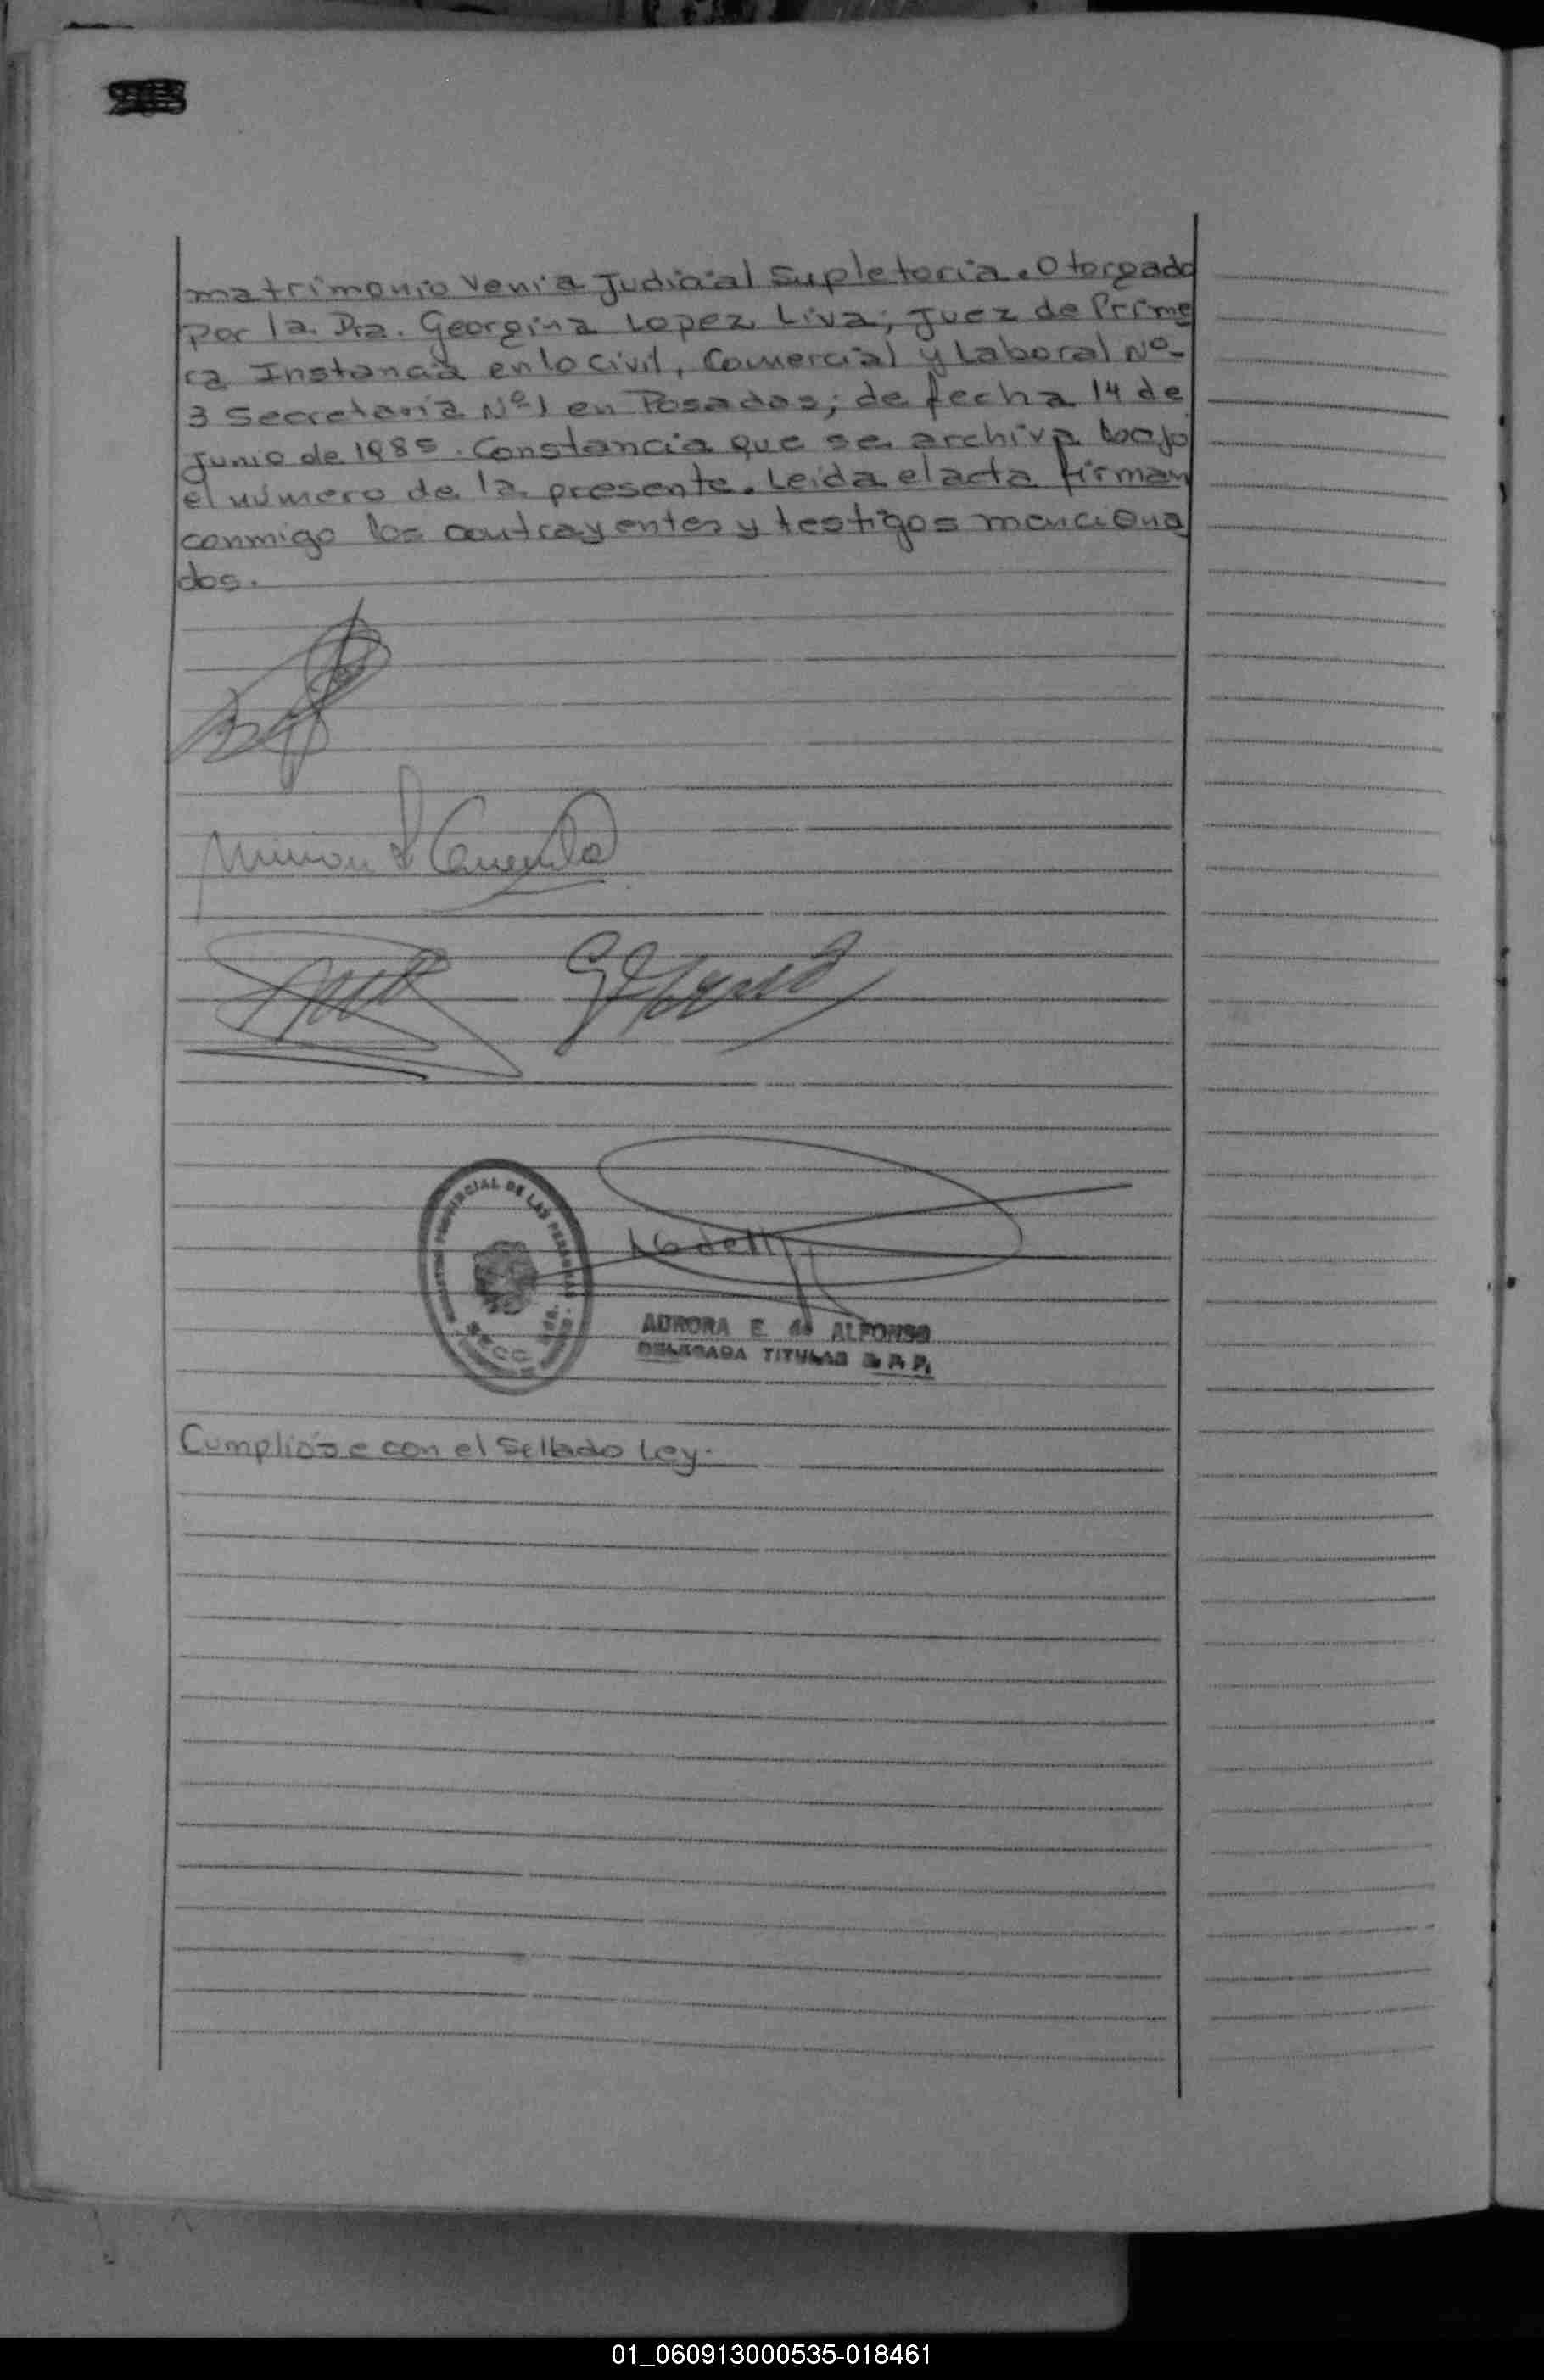 matrimonio Venia Judicial Supletoria. Otorgado
Por la Dra. Georgina Lopez Liva; Juez de Prime
ra Instancia en lo Civil, Comercial y Laboral Nº-
3 Secretaria Nº1 en Posadas; de fecha 14 de
Junio de 1985. Constancia que se archiva bajo
el número de la presente. Leida el acta firman
conmigo los contrayentes y testigos menciona
dos.
PROVINCIAL DE LAS PERSONAS
AURORA E. de ALFONSO
DELEGADA TITULAR R. P. P.
Cumpliose con el Sellado Ley.
01_060913000535-018461